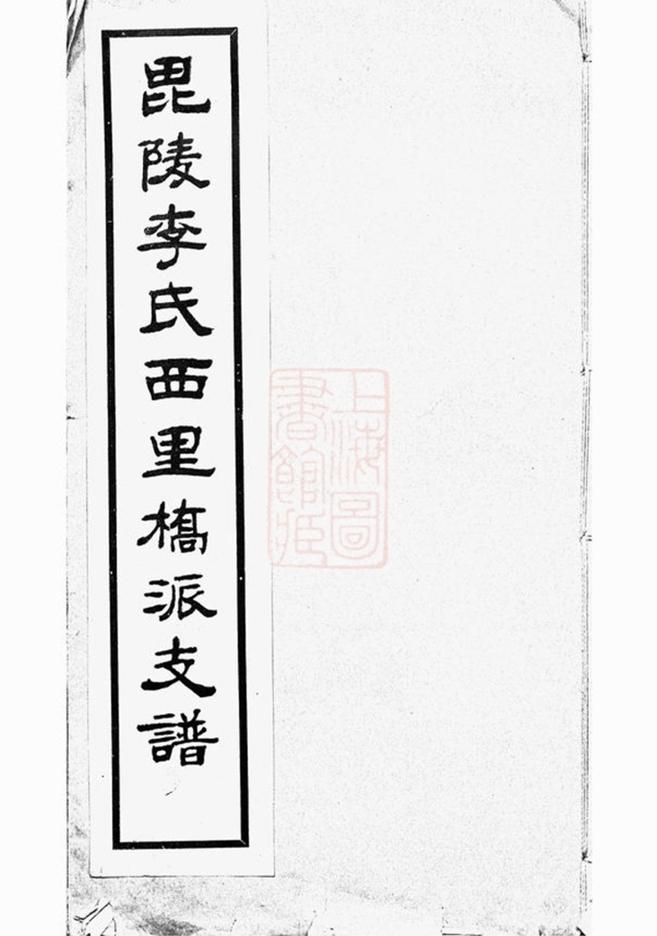 毘陵李氏西里橋派支譜
上海圖
書館藏